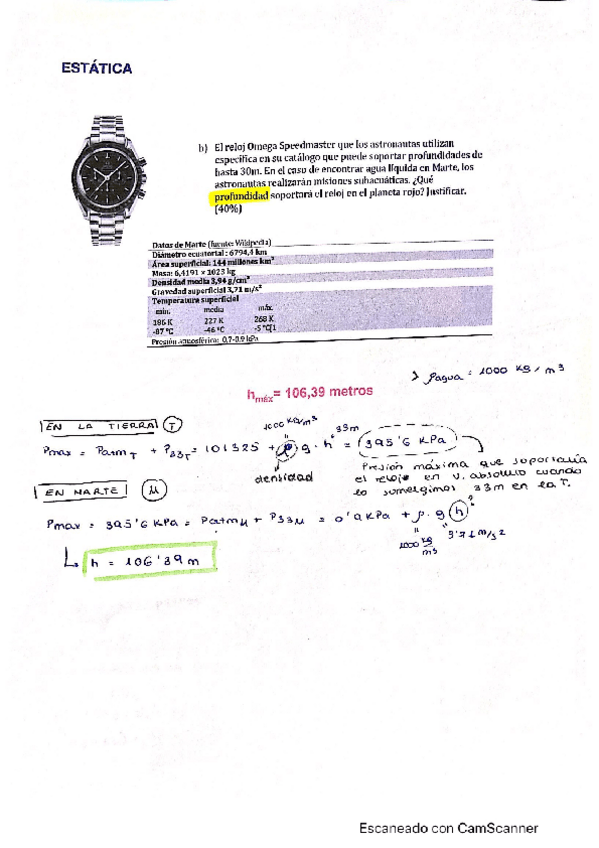 ESTÁTICA
b) El reloj Omega Speedmaster que los astronautas utilizan
especifica en su catálogo que puede soportar profundidades de
hasta 30m. En el caso de encontrar agua líquida en Marte, los
astronautas realizarán misiones subacuáticas. ¿Qué
profundidad soportará el reloj en el planeta rojo? Justificar.
(40%)
Datos de Marte (fuente: Wikipedia)
Diámetro ecuatorial : 6794,4 km
Área superficial: 144 millones km²
Masa: 6,4191 × 1023 kg
Densidad media 3,94 g/cm³
Gravedad superficial 3,71 m/s²
Temperatura superficial
min. media máx.
186 K 227 K 268 K
-87 °C -46 °C -5 °C[1
Presión atmosférica: 0,7-0,9 kPa
> ρagua = 1000 kg/m³
hmáx= 106,39 metros
EN LA TIERRA (T)
1000 kg/m³ 33m
Pmax = PatmT + P33T = 101325 + ρ · g · h = 395'6 KPa
densidad
Presión máxima que soportaría
el reloj en v. absoluto cuando
lo sumergimos 33m en la T.
EN MARTE (M)
Pmax = 395'6 KPa = PatmM + P33M = 0'9 KPa + ρ · g h ?
1000 kg/m³ 3'71 m/s2
h = 106'39 m
Escaneado con CamScanner